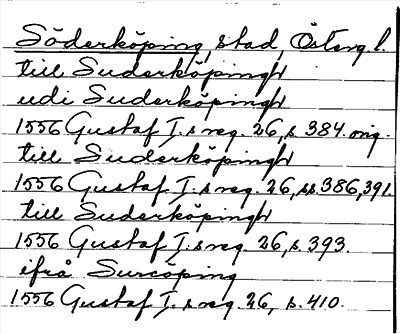 Söderköping, stad, Österg. l.
till Suderköpingh
udi Suderköpingh
1556 Gustaf I:s reg. 26, s. 384. orig.
till Suderköpingh
1556 Gustaf I:s reg. 26, ss 386, 391.
till Suderköpingh
1556 Gustaf I:s reg. 26, s. 393.
ifrå Surcöping
1556 Gustaf I:s reg. 26, s. 410.